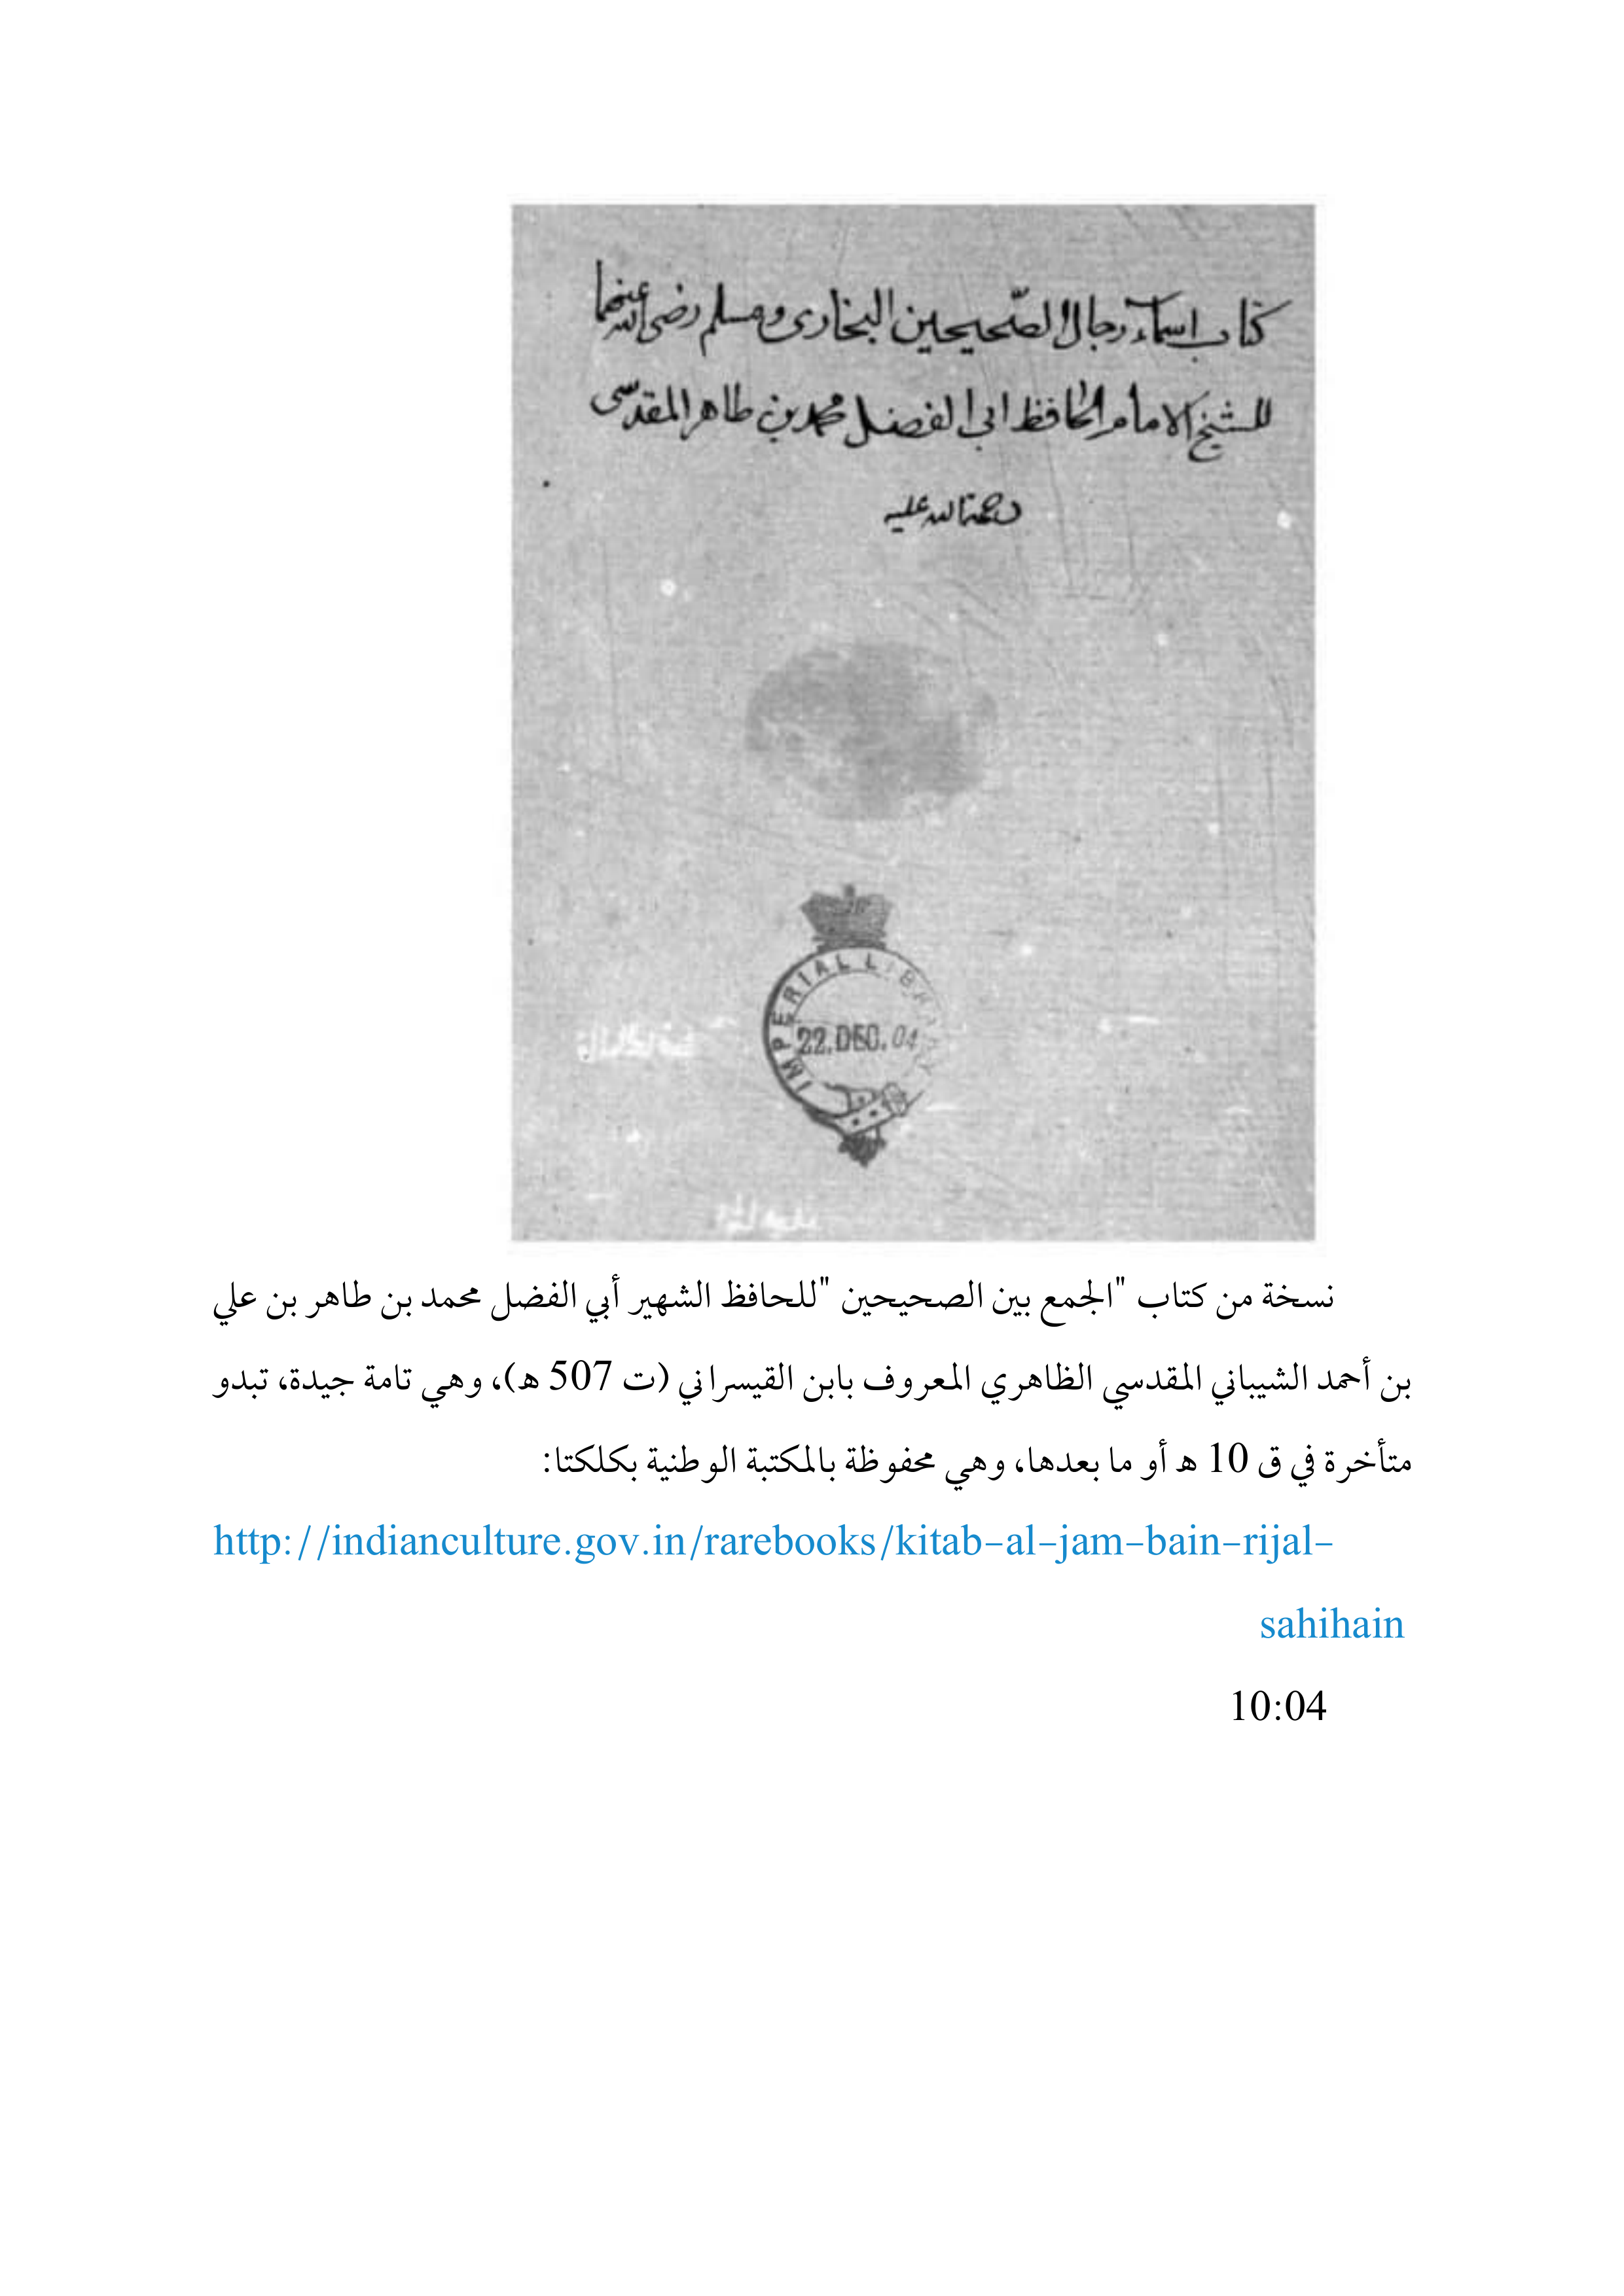 كتاب اسماء رجال الصّحيحين البخارى ومسلم رضى الله عنهما
للشيخ الامام الحافظ ابى الفضل محمد بن طاهر المقدسى
رحمة الله عليه
IMPERIAL LIBRARY
22.DEC.04
نسخة من كتاب "الجمع بين الصحيحين "للحافظ الشهير أبي الفضل محمد بن طاهر بن علي
بن أحمد الشيباني المقدسي الظاهري المعروف بابن القيسراني (ت 507 ه)، وهي تامة جيدة، تبدو
متأخرة في ق 10 ه أو ما بعدها، وهي محفوظة بالمكتبة الوطنية بكلكتا:
http://indianculture.gov.in/rarebooks/kitab-al-jam-bain-rijal-
sahihain
10:04